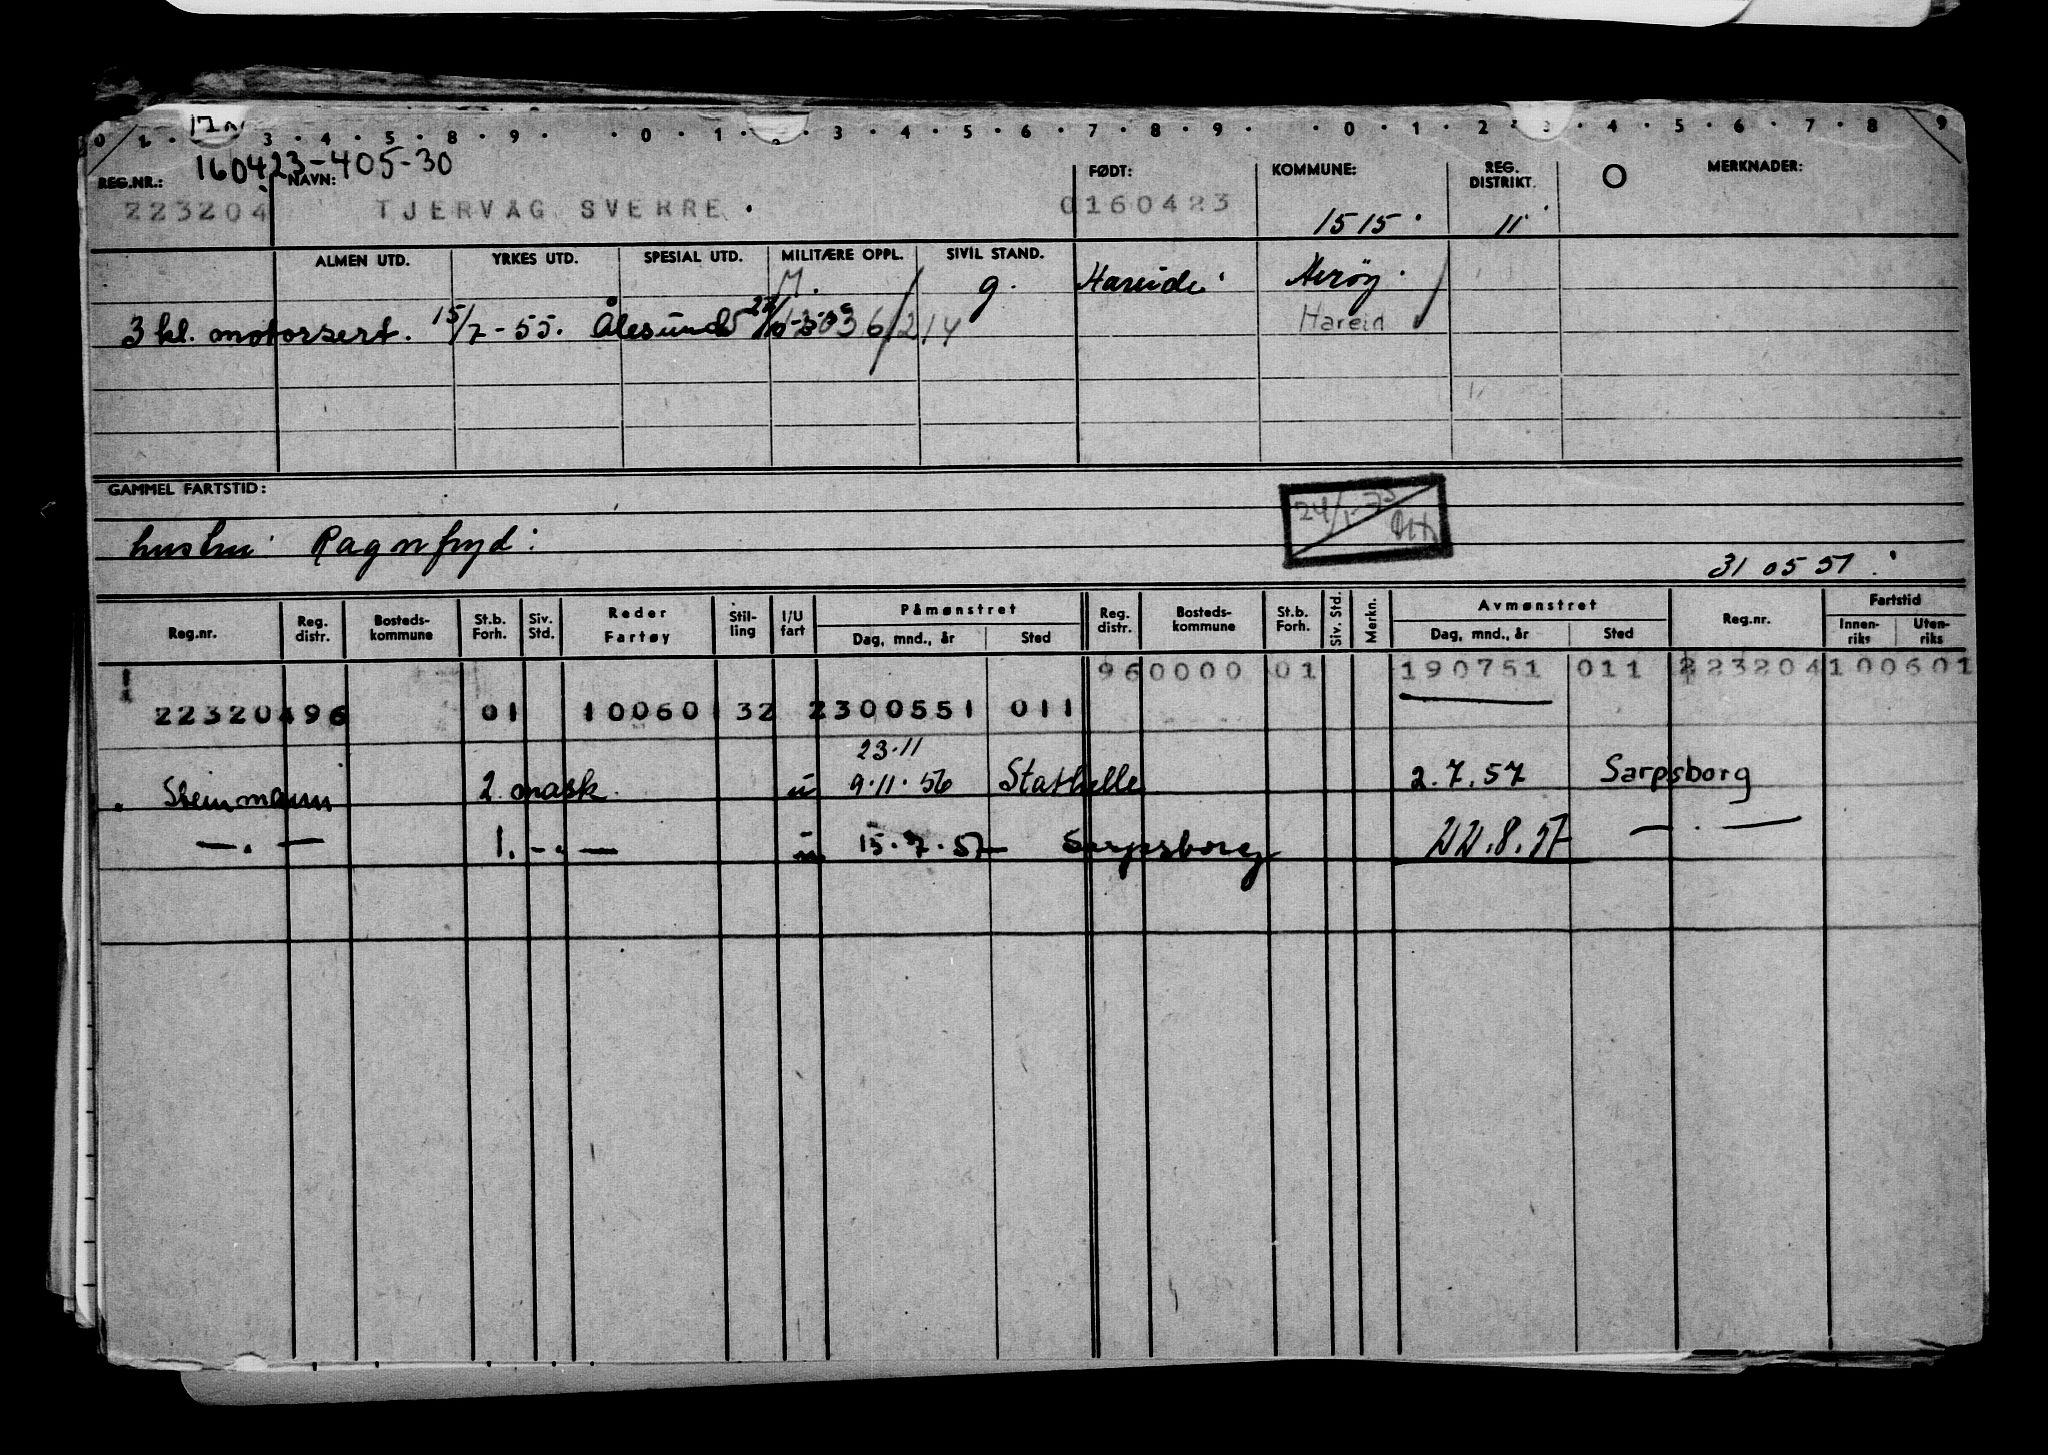 0 1 3 · 4 · 5 · 8 · 9 · · 0 · 1 · 3 · 4 · 5 · 6 · 7 · 8 · 9 · · 0 · 1 · 2 3 · 4 · 5 · 6 · 7 · 8 9
160423-405-30
REG.NR.: NAVN: FØDT: KOMMUNE: REG. DISTRIKT. MERKNADER:
223204 TJERVÅG SVERRE. 0160423 1515 11
ALMEN UTD. YRKES UTD. SPESIAL UTD. MILITÆRE OPPL. SIVIL STAND.
M. g. Hareide Herøy
3 kl. motorsert. 15/7-55. Ålesund Hareid
GAMMEL FARTSTID:
24/1-73
hustru: Ragnfryd:
31 05 51
Reg.nr. Reg. distr. Bosteds-kommune St.b. Forh. Siv. Std. Reder Fartøy Stil-ling I/U fart Påmønstret Dag, mnd., år Sted Reg. distr. Bosteds-kommune St.b. Forh. Siv. Std. Merkn. Avmønstret Dag, mnd., år Sted Reg.nr. Fartstid Innen-riks Uten-riks
960000 01 190751 011 223204 100601
223204 96 01 100601 32 2300551 011
23.11
Steinmann 2. mask. u 9.11.56 Stathelle 2.7.57 Sarpsborg
—.— 1. -.— u 15.7.57 Sarpsborg 22.8.57 —.—